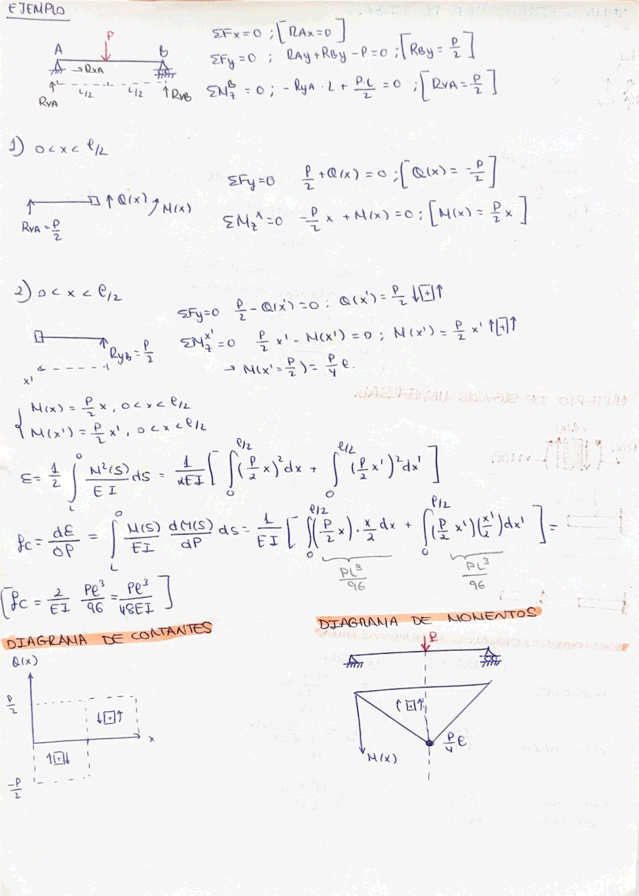 EJEMPLO
ΣFx=0 ; [RAx=0]
ΣFy=0 ; RAy+RBy-P=0 ; [RBy=P/2]
ΣM_z^B=0 ; -RyA·L+PL/2=0 ; [RVA=P/2]
P
A B
→RxA
L/2 L/2
RVA RVB
1) 0<x<ℓ/2
ΣFy=0 P/2+Q(x)=0 ; [Q(x)=-P/2]
Q(x) M(x)
RVA=P/2
ΣM_z^x=0 -P/2 x+M(x)=0 ; [M(x)=P/2 x]
2) 0<x<ℓ/2
ΣFy=0 P/2-Q(x')=0 ; Q(x')=P/2 ↓[+]↑
RyB=P/2
x'
ΣM_z^x'=0 P/2 x'-M(x')=0 ; M(x')=P/2 x' ↑[+]↑
→ M(x'=P/2)=P/4 ℓ.
{ M(x)=P/2 x, 0<x<ℓ/2
M(x')=P/2 x', 0<x<ℓ/2
Ɛ=1/2 ∫_L^0 M²(S)/EI ds = 1/2EI [∫_0^ℓ/2 (P/2 x)² dx + ∫_0^ℓ/2 (P/2 x')² dx']
fc=dƐ/∂P=∫_L^0 M(S)/EI dM(S)/dP ds=1/EI [∫_0^ℓ/2 (P/2 x)·x/2 dx + ∫_0^ℓ/2 (P/2 x')(x'/2)dx']=
PL³/96 PL³/96
[fc=2/EI Pℓ³/96=Pℓ³/48EI]
DIAGRAMA DE CORTANTES
Q(x)
P/2
↓[+]↑
x
↑[-]↓
-P/2
DIAGRAMA DE MOMENTOS
P
(↑[+]↑)
P/4 ℓ
M(x)